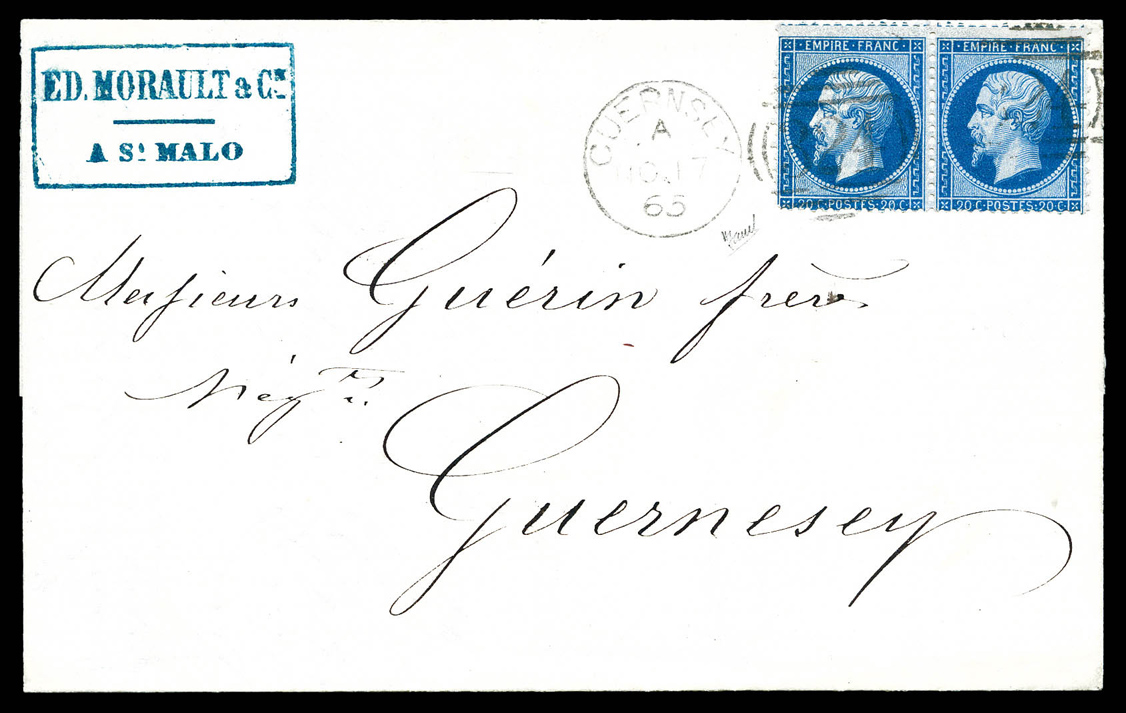 ED. MORAULT & Cⁱᵉ
A Sᵗ MALO
GUERNSEY
A
NO 17
65
EMPIRE·FRANC·
20C·POSTES·20C
EMPIRE·FRANC·
20C·POSTES·20C
Messieurs Guérin frères
Négᵗˢ
Guernesey